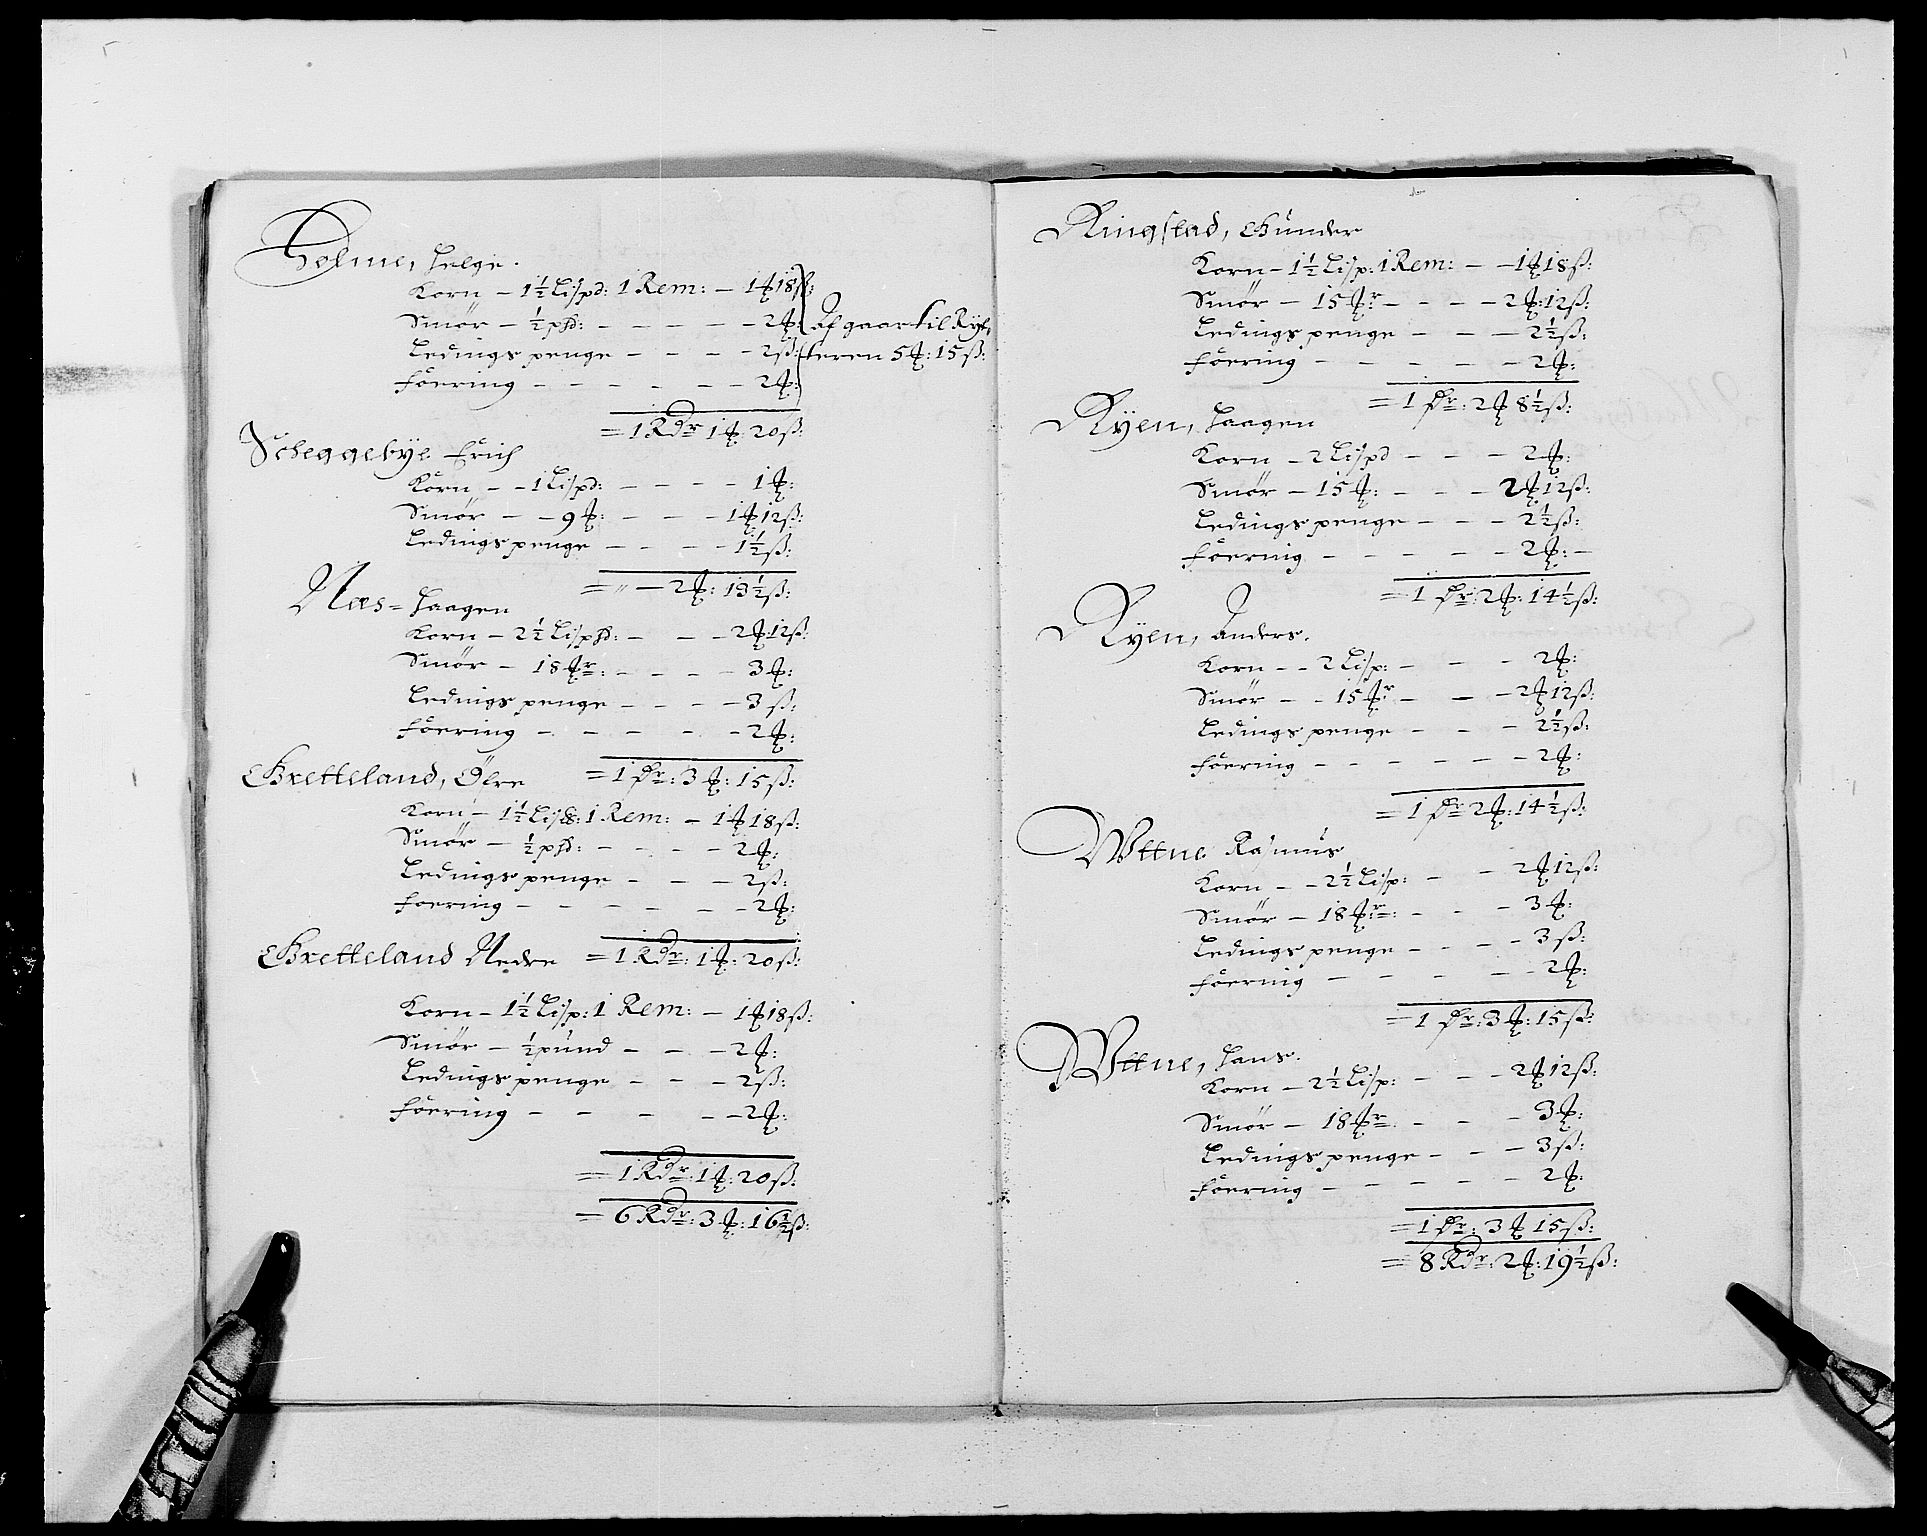 Holme, Helge.
Korn – 1½ Lispd: 1 Rem: – 1 ℔ 18 ß:
Smör – ½ pfd: – – – – – 2 ℔: Afgaar til Ryt-
Ledings penge – – – – 2 ß: teren 5 ℔: 15 ß:
Föering – – – – – – 2 ℔:
= 1 Rdr 1 ℔: 20 ß:
Scheggebye Erich
Korn – – 1 Lispd: – – – – 1 ℔:
Smör – – 9 ℔: – – – – 1 ℔ 12 ß:
Ledings penge – – – – 1½ ß:
= „ – 2 ℔: 13½ ß:
Næs = Haagen
Korn – 2½ Lispfd: – – – 2 ℔: 12 ß:
Smör – 18 ℔r: – – – – 3 ℔:
Ledings penge – – – – 3 ß:
Föering – – – – – – 2 ℔:
= 1 Dr: 3 ℔: 15 ß:
Gretteland, Öfre
Korn – 1½ Lispd: 1 Rem: – 1 ℔ 18 ß:
Smör – ½ pfd: – – – – 2 ℔:
Ledings penge – – – 2 ß:
Foering – – – – – – 2 ℔:
= 1 Rdr: 1 ℔: 20 ß:
Gretteland Nedre
Korn – 1½ Lisp: 1 Rem: – 1 ℔ 18 ß:
Smör – ½ pund – – – 2 ℔:
Ledings penge – – – 2 ß:
Föering – – – – – 2 ℔:
= 1 Rdr: 1 ℔: 20 ß:
= 6 Rdr: 3 ℔: 16½ ß:
Ringstad, Gunder
Korn – 1½ Lisp: 1 Rem: – – 1 ℔ 18 ß:
Smör – 15 ℔r – – – – 2 ℔: 12 ß:
Ledings penge – – – 2½ ß:
Föering – – – – – 2 ℔:
= 1 Dr: 2 ℔ 8½ ß:
Ryen, Haagen
Korn – 2 Lispd – – – 2 ℔:
Smör – 15 ℔: – – – 2 ℔ 12 ß:
Ledings penge – – – 2½ ß:
Föering – – – – – 2 ℔: –
= 1 Dr: 2 ℔: 14½ ß:
Ryen, Anders.
Korn – – 2 Lisp: – – – 2 ℔:
Smör – – 15 ℔r – – – 2 ℔ 12 ß:
Ledings penge – – – 2½ ß:
Föering – – – – – – 2 ℔:
= 1 Dr 2 ℔: 14½ ß:
Wttne Rasmus
Korn – – 2½ Lisp: – – 2 ℔ 12 ß:
Smör – 18 ℔r: – – – 3 ℔:
Ledings penge – – – – 3 ß:
Föering – – – – – – 2 ℔:
= 1 Dr: 3 ℔: 15 ß:
Wttne, Hans.
Korn – 2½ Lisp: – – – 2 ℔ 12 ß:
Smör – 18 ℔r – – – 3 ℔:
Ledings penge – – – 3 ß:
Föering – – – – – 2 ℔:
= 1 Dr: 3 ℔ 15 ß:
= 8 Rdr: 2 ℔: 19½ ß: